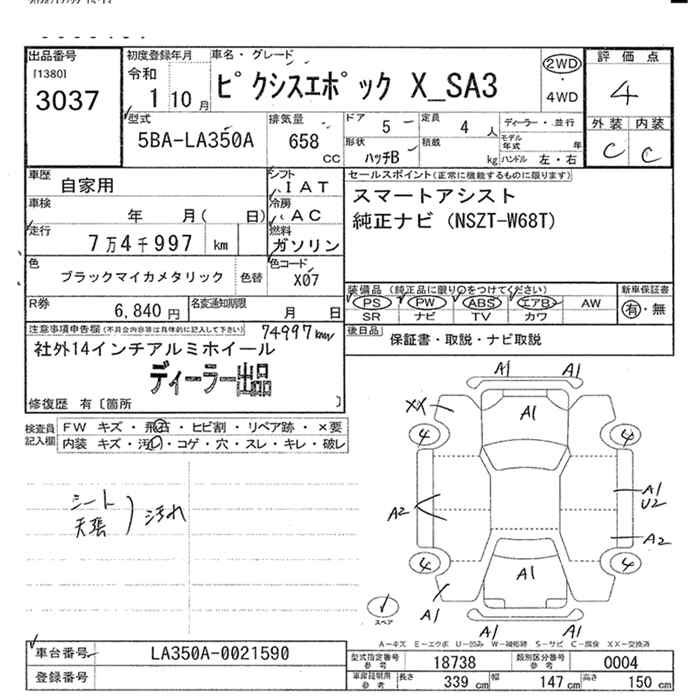 出品番号 初度登録年月 車名・グレード 評価点
[1380] 令和
3037 1 10月 ピクシスエポック X_SA3 2WD ・ 4WD 4
型式 排気量 ドア 5 定員 4人 ディーラー・並行 外装 内装
5BA-LA350A 658 CC 形状 ハッチB 積載 kg モデル年式 年 C C
ハンドル 左・右
車歴 自家用 シフト IAT セールスポイント(正常に機能するものに限ります)
車検 年 月( 日) 冷房 AC スマートアシスト
走行 7万4千997 km 燃料 ガソリン 純正ナビ (NSZT-W68T)
色 ブラックマイカメタリック 色替 色コード X07
R券 6,840円 名変通知期限 月 日 装備品 (純正品に限り○をつけてください) 新車保証書
PS PW ABS エアB AW 有・無
SR ナビ TV カワ
注意事項申告欄(不具合内容等は具体的に記入して下さい) 74997km 後日品 保証書・取説・ナビ取説
社外14インチアルミホイール
ディーラー出品
修復歴 有〔箇所 〕
検査員記入欄 FW キズ・飛石・ヒビ割・リペア跡・×要
内装 キズ・汚れ・コゲ・穴・スレ・キレ・破レ
A1 A1
XX A1
4 4
シート
天張 ) 汚れ
A2 A1
U2
A2
4 A1 4
A1
スペア
A1 A1
A-キズ E-エクボ U-凹み W-補修跡 S-サビ C-腐食 XX-交換済
車台番号 LA350A-0021590 型式指定番号 参考 18738 類別区分番号 参考 0004
登録番号 車庫証明用 参考 長さ 339cm 幅 147cm 高さ 150cm